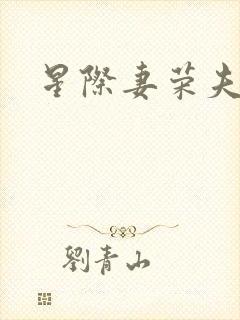 星際妻荣夫
劉青山